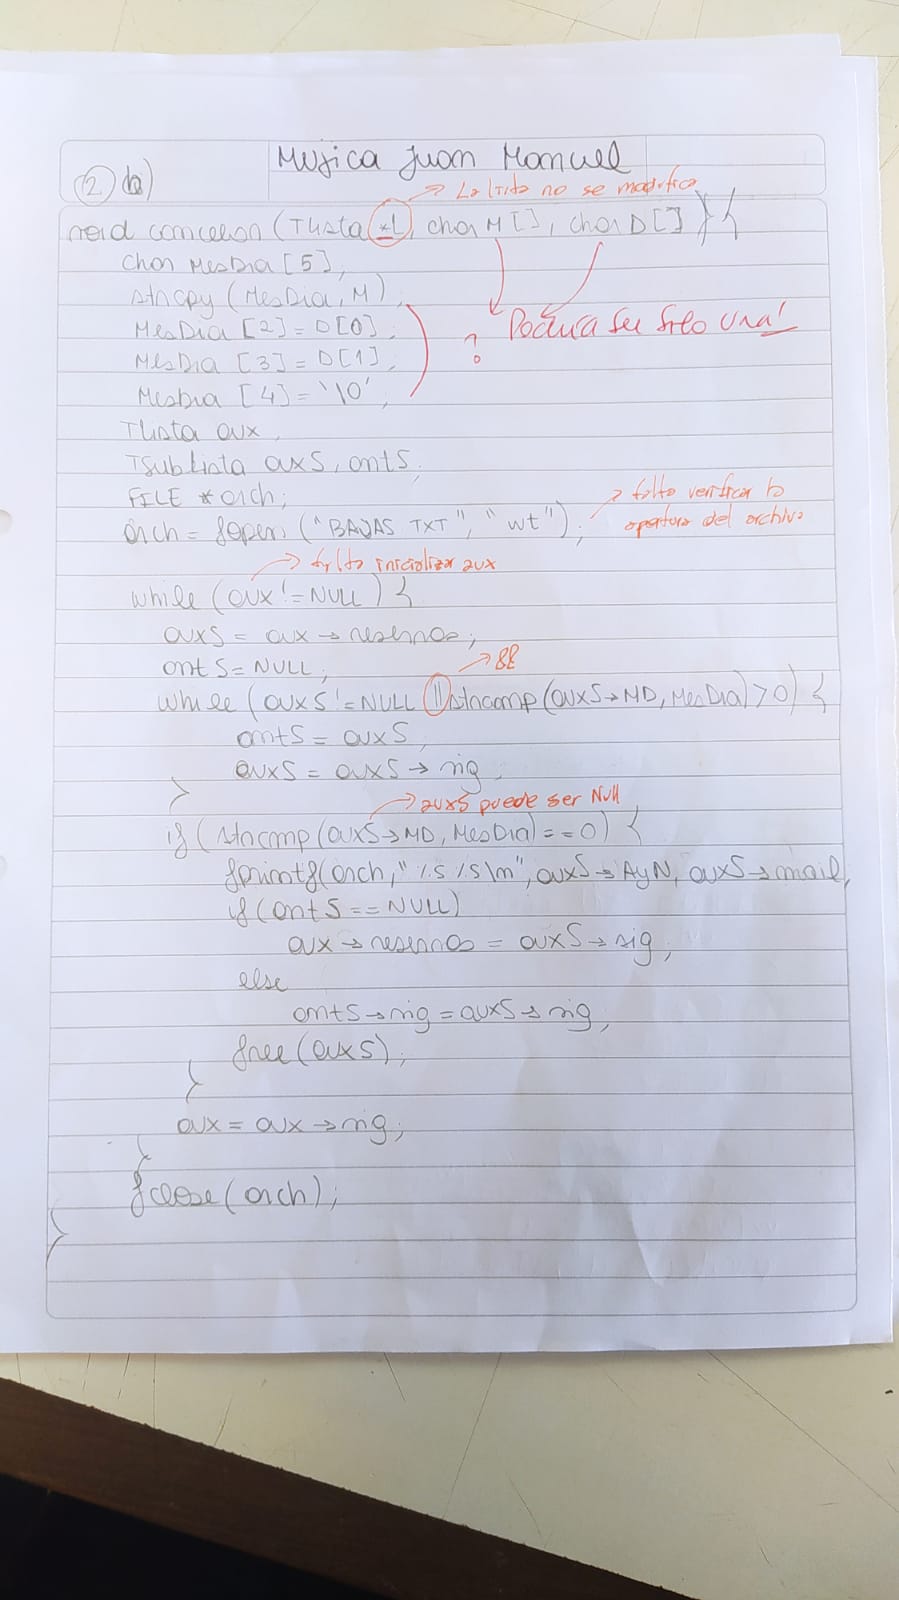 Mujica Juan Manuel
2 b)
La lista no se modifica
void cancelacion (TLista *L, char M[], char D[]) {
char MesDia [5];
strcpy (MesDia, M);
MesDia [2] = D[0];
? Podría ser sólo una!
MesDia [3] = D[1];
MesDia [4] = '\0';
TLista aux;
TSubLista auxS, antS;
FILE * arch;
falto verificar la
arch = fopen ("BAJAS TXT", "wt");
apertura del archivo
falto inicializar aux
while (aux != NULL) {
auxS = aux → reservas;
antS = NULL;
&&
while (auxS != NULL || strcmp (auxS→MD, MesDia) > 0) {
antS = auxS;
auxS = auxS → sig;
}
auxS puede ser Null
if (strcmp (auxS→MD, MesDia) == 0) {
fprintf (arch, "%s %s\n", auxS→AyN, auxS→mail,
if (antS == NULL)
aux → reservas = auxS → sig;
else
antS → sig = auxS → sig;
free (auxS);
}
aux = aux → sig;
}
fclose (arch);
}